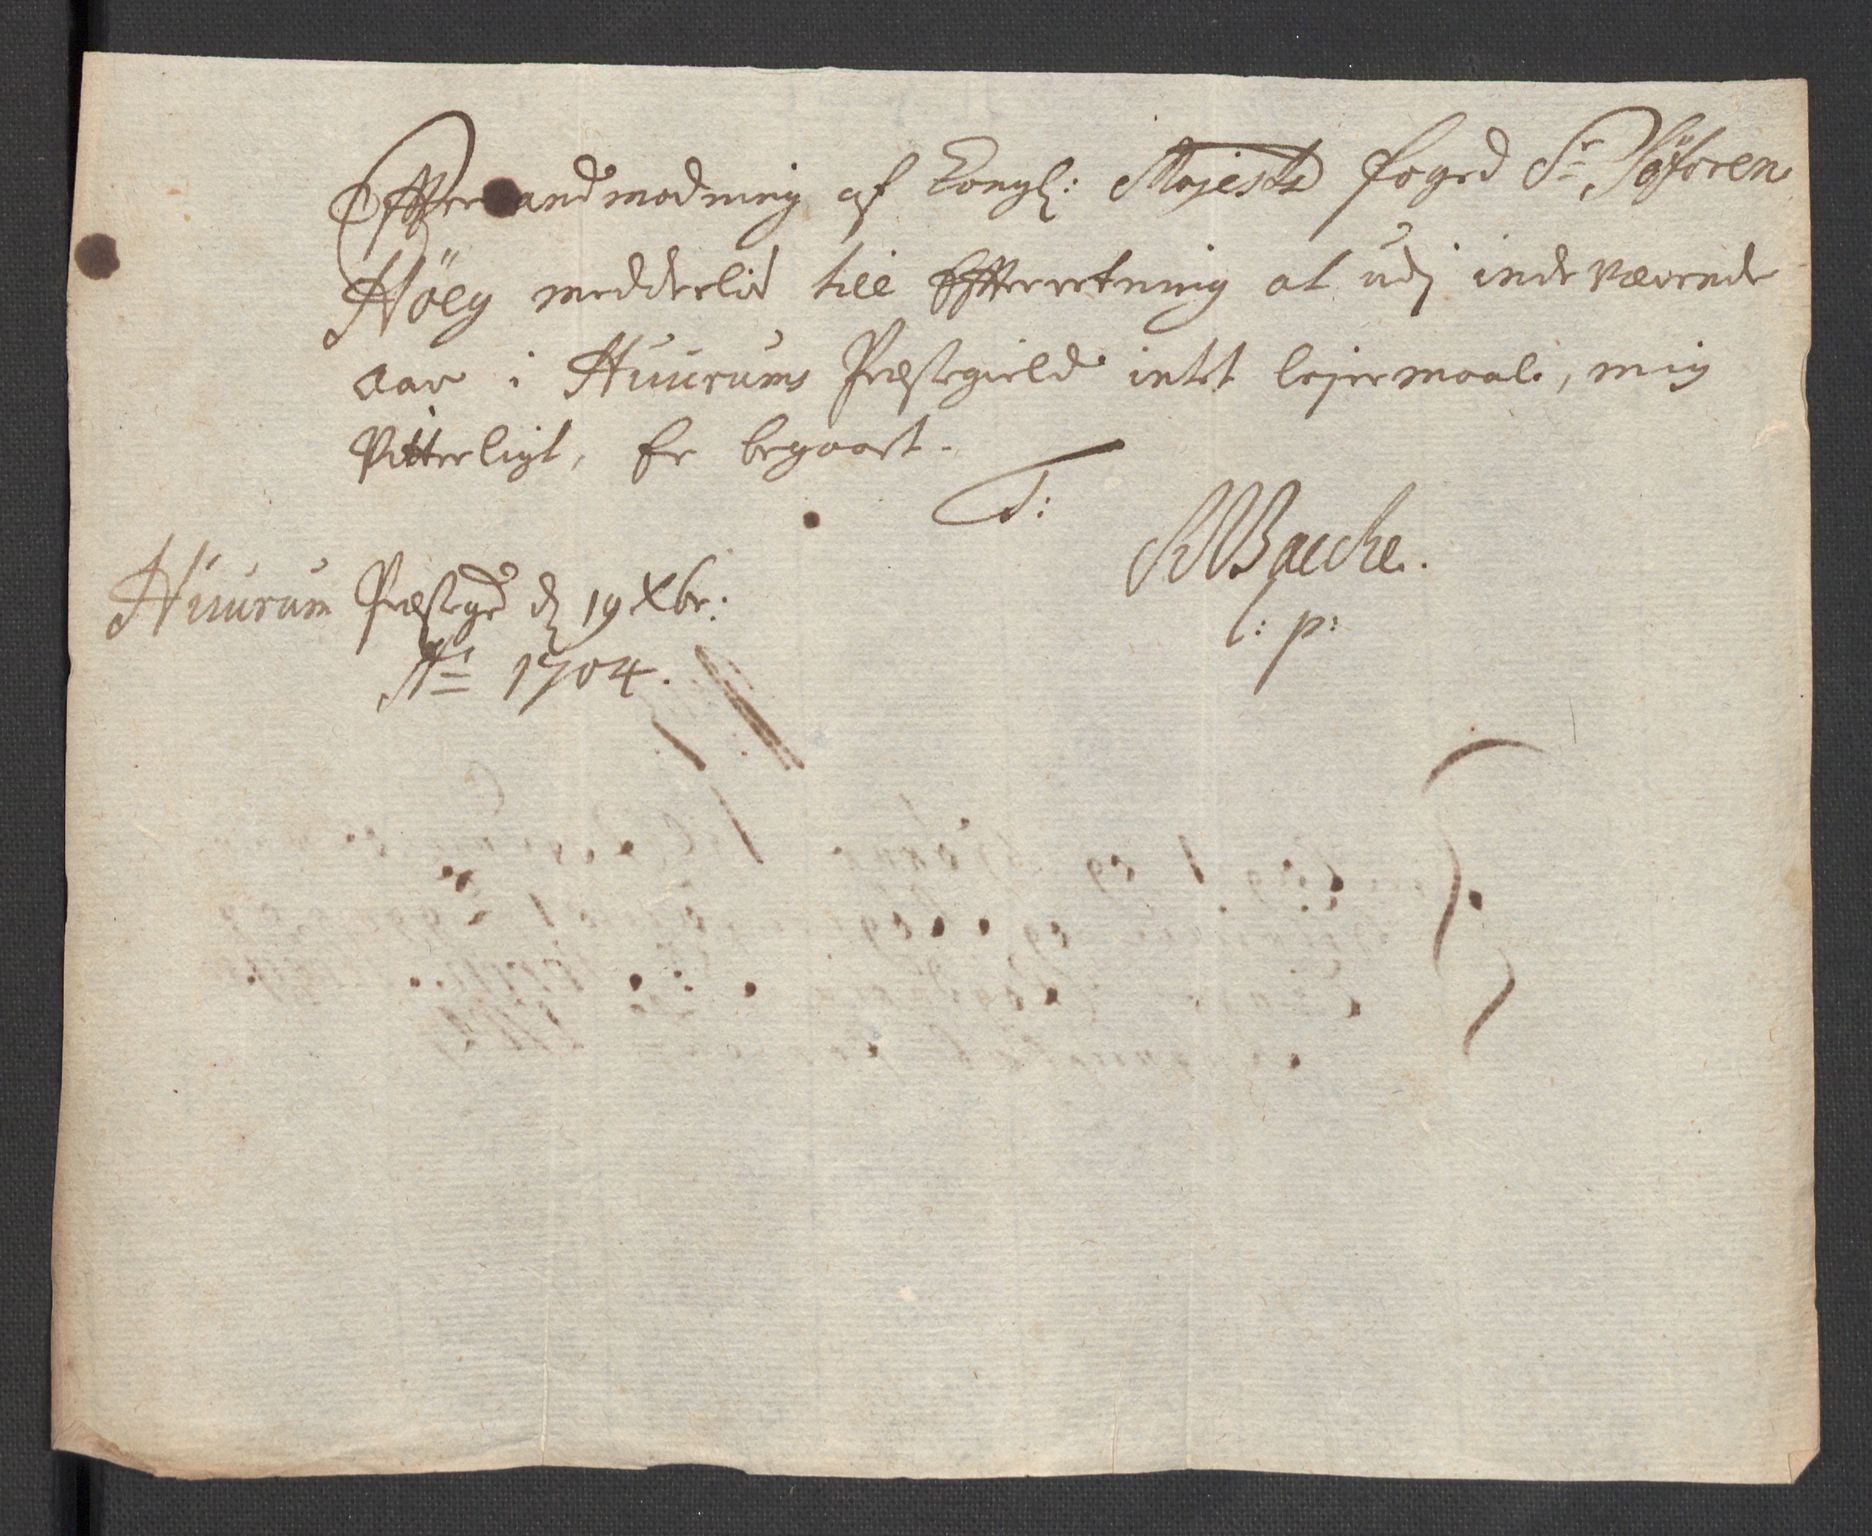 Effter andmodning af Kongl: Majests foged Sr Søfren
Höeg meddeelis till Effterretning at udj indeværende
aar i Huurums Præstegield intet lejermaal, mig
Vitterligt, Er begaaet.
T:
Bacche.
l: p:
Huurum Præstegd d 19 Xbr:
Ao 1704.